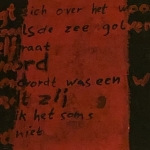 gt zich over het woo
als de zee gol
rant
ord
wordt was een w
t zij
ik het soms
niet